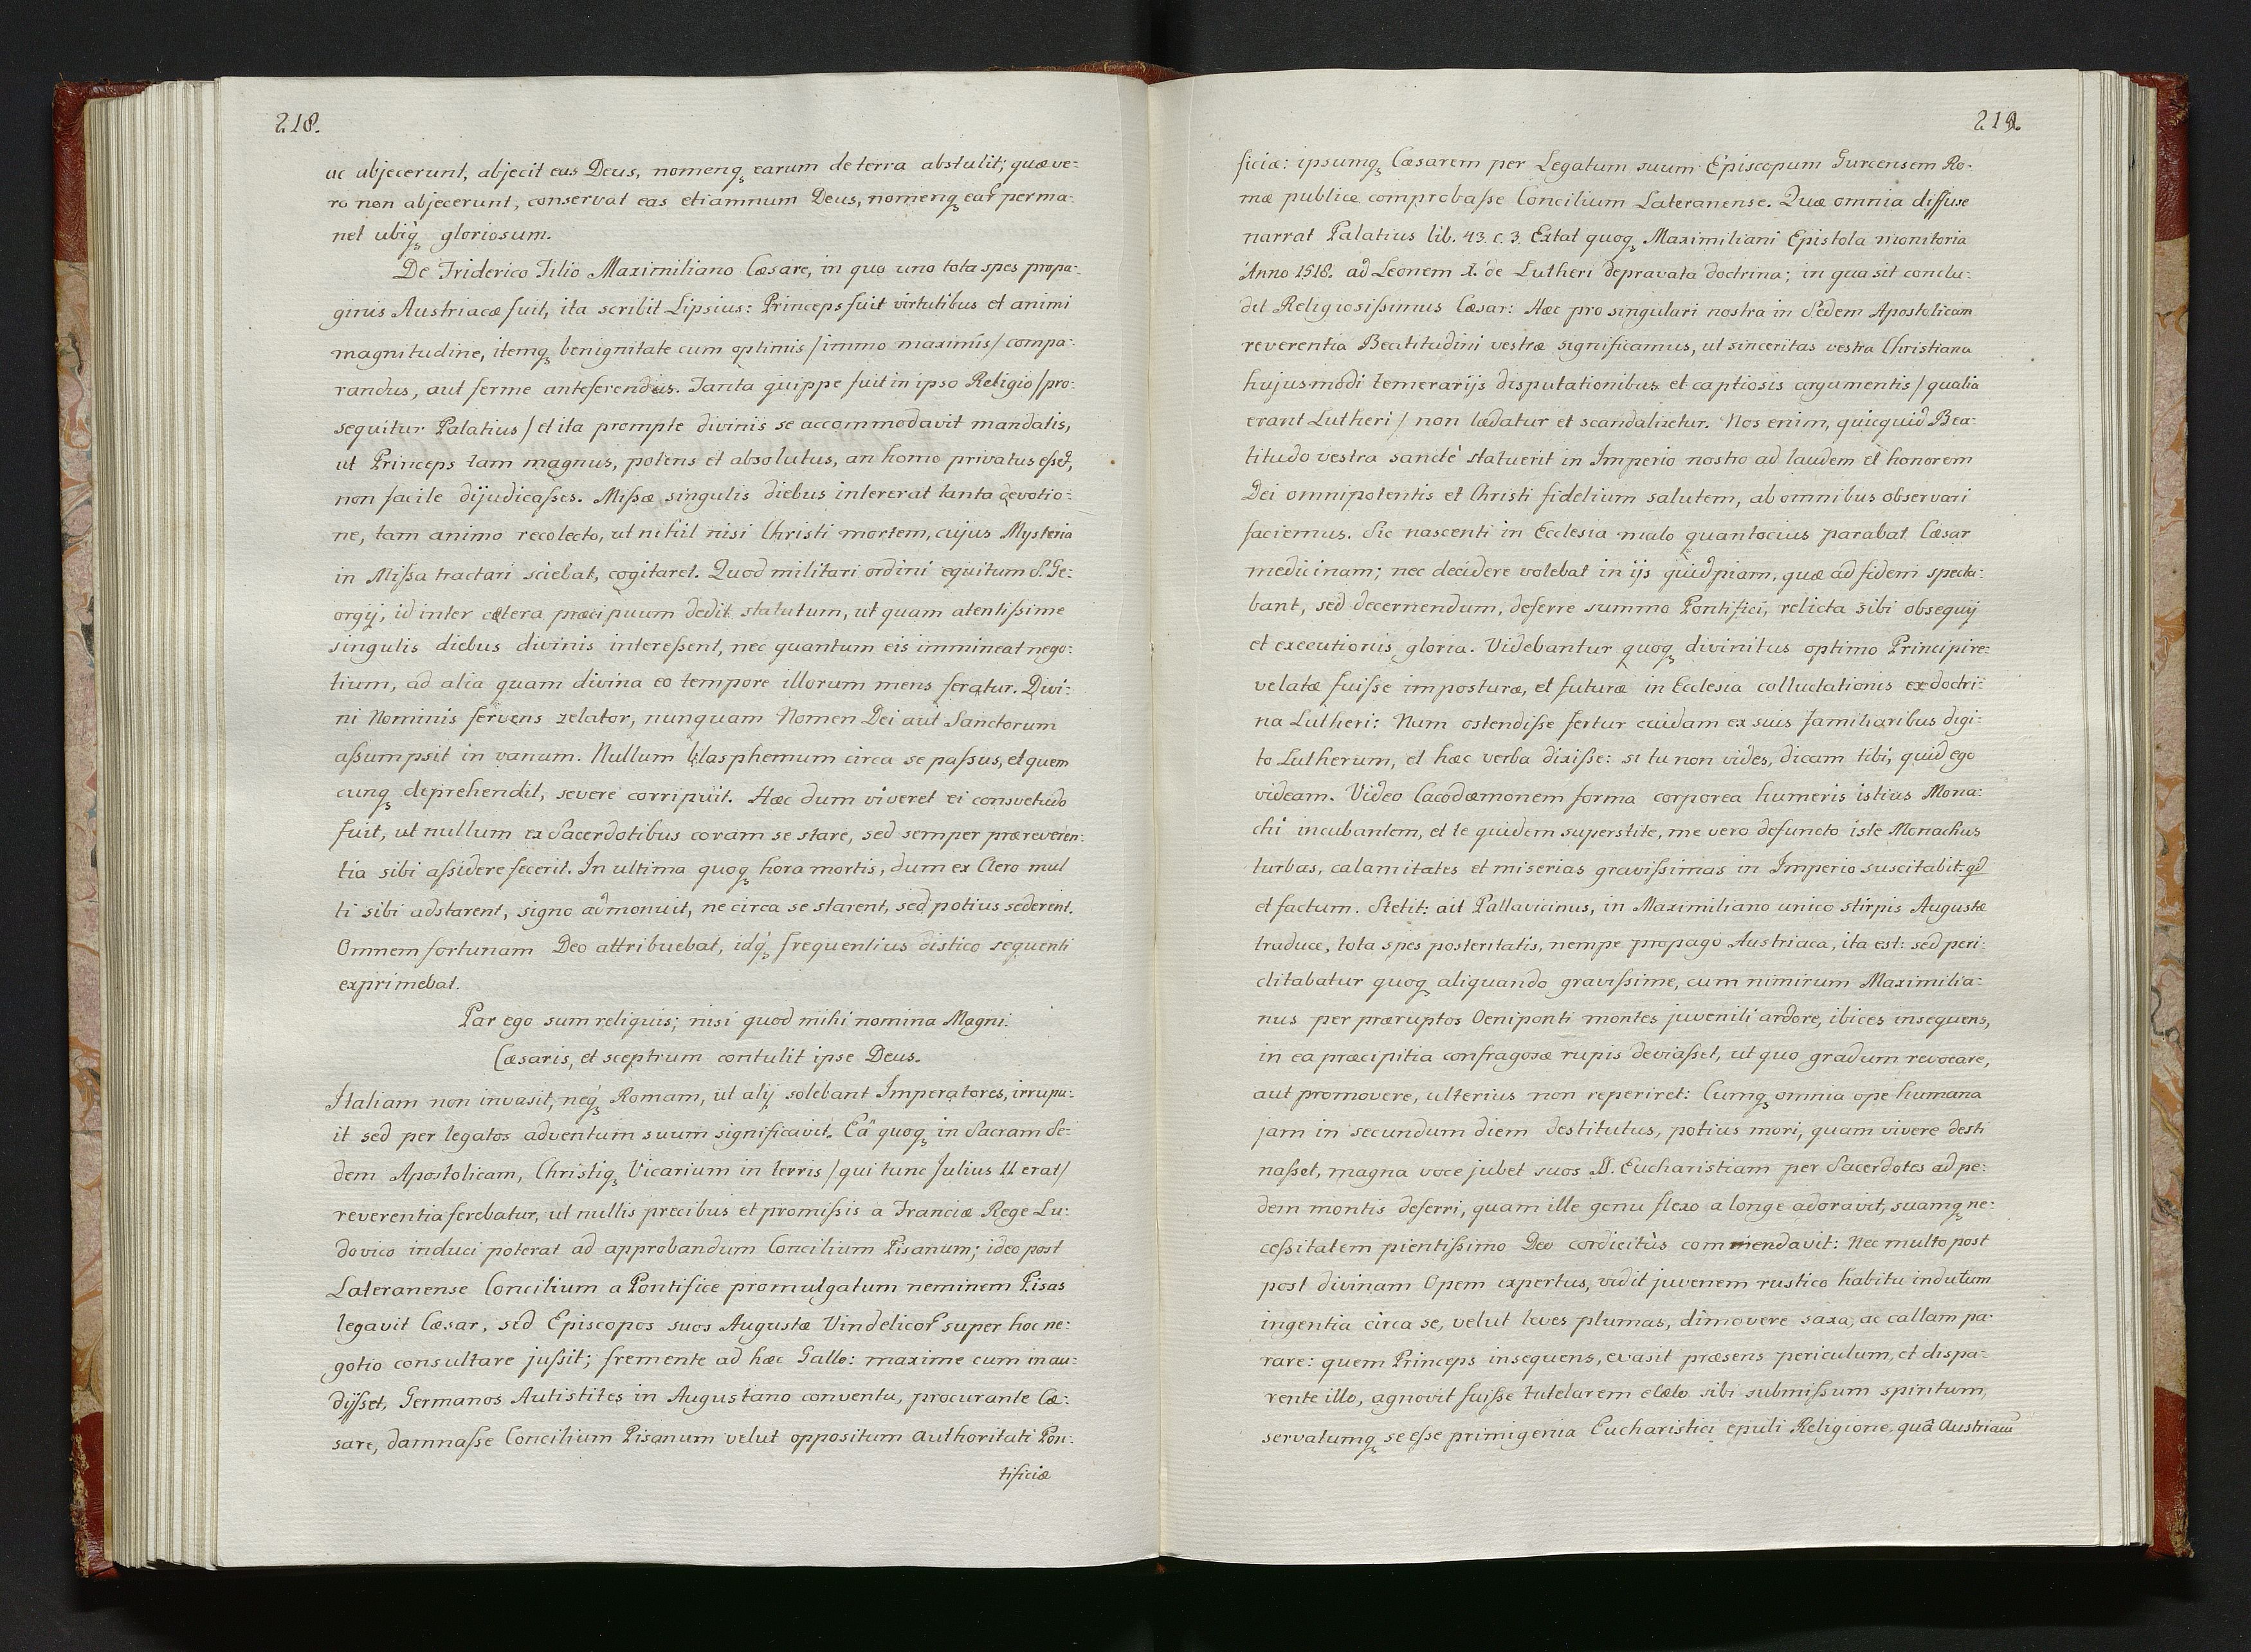 218.
ac abjecerunt, abjecit eas Deus, nomenq̨ earum de terra abstulit; quæ ve:
ro non abjecerunt, conservat eas etiamnum Deus, nomenq̨ eaꝝ perma:
net ubiq̨ gloriosum.
De Friderico Filio Maximiliano Cæsare, in quo uno tota spes propa:
ginis Austriacæ fuit, ita scribit Lipsius: Princeps fuit virtutibus et animi
magnitudine, itemq̨ benignitate cum optimis /immo maximis/ compa:
randus, aut ferme anteferendus. Tanta quippe fuit in ipso Religio /pro:
sequitur Palatius/ et ita prompte divinis se accommodavit mandatis,
ut Princeps tam magnus, potens et absolutus, an homo privatus eſset,
non facile dijudicaſses. Miſsæ singulis diebus intererat tanta devotio:
ne, tam animo recolecto, ut nihil nisi Christi mortem, cujus Mysteria
in Miſsa tractari sciebat, cogitaret. Quod militari ordini equitum S. Ge:
orgij, id inter cætera præcipuum dedit statutum, ut quam atentiſsime
singulis diebus divinis intereſsent, nec quantum eis immineat nego:
tium, ad alia quam divina eo tempore illorum mens feratur. Divi:
ni Nominis fervens zelator, nunquam Nomen Dei aut Sanctorum
aſsumpsit in vanum. Nullum blasphemum circa se paſsus, et quem
cunq̨ deprehendit, severe corripuit. Hæc dum viveret ei consvetudo
fuit, ut nullum ex Sacerdotibus coram se stare, sed semper præ reveren:
tia sibi aſsidere fecerit. In ultima quoq̨ hora mortis, dum ex Clero mul
ti sibi adstarent, signo admonuit, ne circa se starent, sed potius sederent.
Omnem fortunam Deo attribuebat, idq̨ frequentius distico sequenti
exprimebat.
Par ego sum reliquis; nisi quod mihi nomina Magni.
Cæsaris, et sceptrum contulit ipse Deus.
Italiam non invasit, neq̨ Romam, ut alij solebant Imperatores, irrupu:
it sed per legatos adventum suum significavit. Eâ quoq̨ in Sacram Se:
dem Apostolicam, Christiq̨ Vicarium in terris /qui tunc Julius II erat/
reverentia ferebatur, ut nullis precibus et promiſsis a Franciæ Rege Lu:
dovico induci poterat ad approbandum Concilium Pisanum; ideo post
Lateranense Concilium a Pontifice promulgatum neminem Pisas
legavit Cæsar, sed Episcopos suos Augustæ Vindelicoꝝ super hoc ne:
gotio consultare juſsit; fremente ad hæc Gallo: maxime cum inau:
dijſset, Germanos Autistites in Augustano conventu, procurante Cæ:
sare, damnaſse Concilium Pisanum velut oppositum Authoritati Pon:
tificiæ
219.
ficiæ: ipsumq̨ Cæsarem per Legatum suum Episcopum Gurcensem Ro:
mæ publice comprobaſse Concilium Lateranense. Quæ omnia diffuse
narrat Palatius lib. 43. c. 3. Extat quoq̨ Maximiliani Epistola monitoria
Anno 1518. ad Leonem X. de Lutheri depravata doctrina; in qua sit conclu:
dit Religiosiſsimus Cæsar: Hæc pro singulari nostra in Sedem Apostolicam
reverentia Beatitudini vestræ significamus, ut sinceritas vestra Christiana
hujusmodi temerarijs disputationibus et captiosis argumentis /qualia
erant Lutheri/ non lædatur et scandalizetur. Nos enim, quicquid Bea:
titudo vestra sanctè statuerit in Imperio nostro ad laudem et honorem
Dei omnipotentis et Christi fidelium salutem, ab omnibus observari
faciemus. Sic nascenti in Ecclesia malo quantocius parabat Cæsar
medicinam; nec decidere volebat in ijs quidpiam, quæ ad fidem specta:
bant, sed decernendum, deferre summo Pontifici, relicta sibi obsequij
et executionis gloria. Videbantur quoq̨ divinitus optimo Principi re:
velatæ fuiſse imposturæ, et futuræ in Ecclesia colluctationis ex doctri:
na Lutheri: Nam ostendiſse fertur cuidam ex suis familiaribus digi:
to Lutherum, et hæc verba dixiſse: si tu non vides, dicam tibi, quid ego
videam. Video Cacodæmonem forma corporea humeris istius Mona:
chi incubantem, et te quidem superstite, me vero defuncto iste Monachus
turbas, calamitates et miserias graviſsimas in Imperio suscitabit: qd
et factum. Stetit: ait Pallavicinus, in Maximiliano unico stirpis Augustæ
traduce, tota spes posteritatis, nempe propago Austriaca, ita est: sed peri:
clitabatur quoq̨ aliquando graviſsime, cum nimirum Maximilia:
nus per præruptos Oeniponti montes juvenili ardore, ibices insequens,
in ea præcipitia confragosæ rupis deviaſset, ut quo gradum revocare,
aut promovere, ulterius non reperiret: Cumq̨ omnia ope humana
jam in secundum diem destitutus, potius mori, quam vivere desti
naſset, magna voce jubet suos SS. Eucharistiam per Sacerdotes ad pe:
dem montis deferri, quam ille genu flexo a longe adoravit, suamq̨ ne:
ceſsitatem pientiſsimo Deo cordicitùs commendavit: Nec multo post
post divinam Opem expertus, vidit juvenem rustico habitu indutum
ingentia circa se, velut leves plumas, dimovere saxa, ac callam pa:
rare: quem Princeps insequens, evasit præsens periculum, et dispa:
rente illo, agnovit fuiſse tutelarem e cælo sibi submiſsum spiritum,
servatumq̨ se eſse primigenia Eucharistici epuli Religione, quâ Austriacū